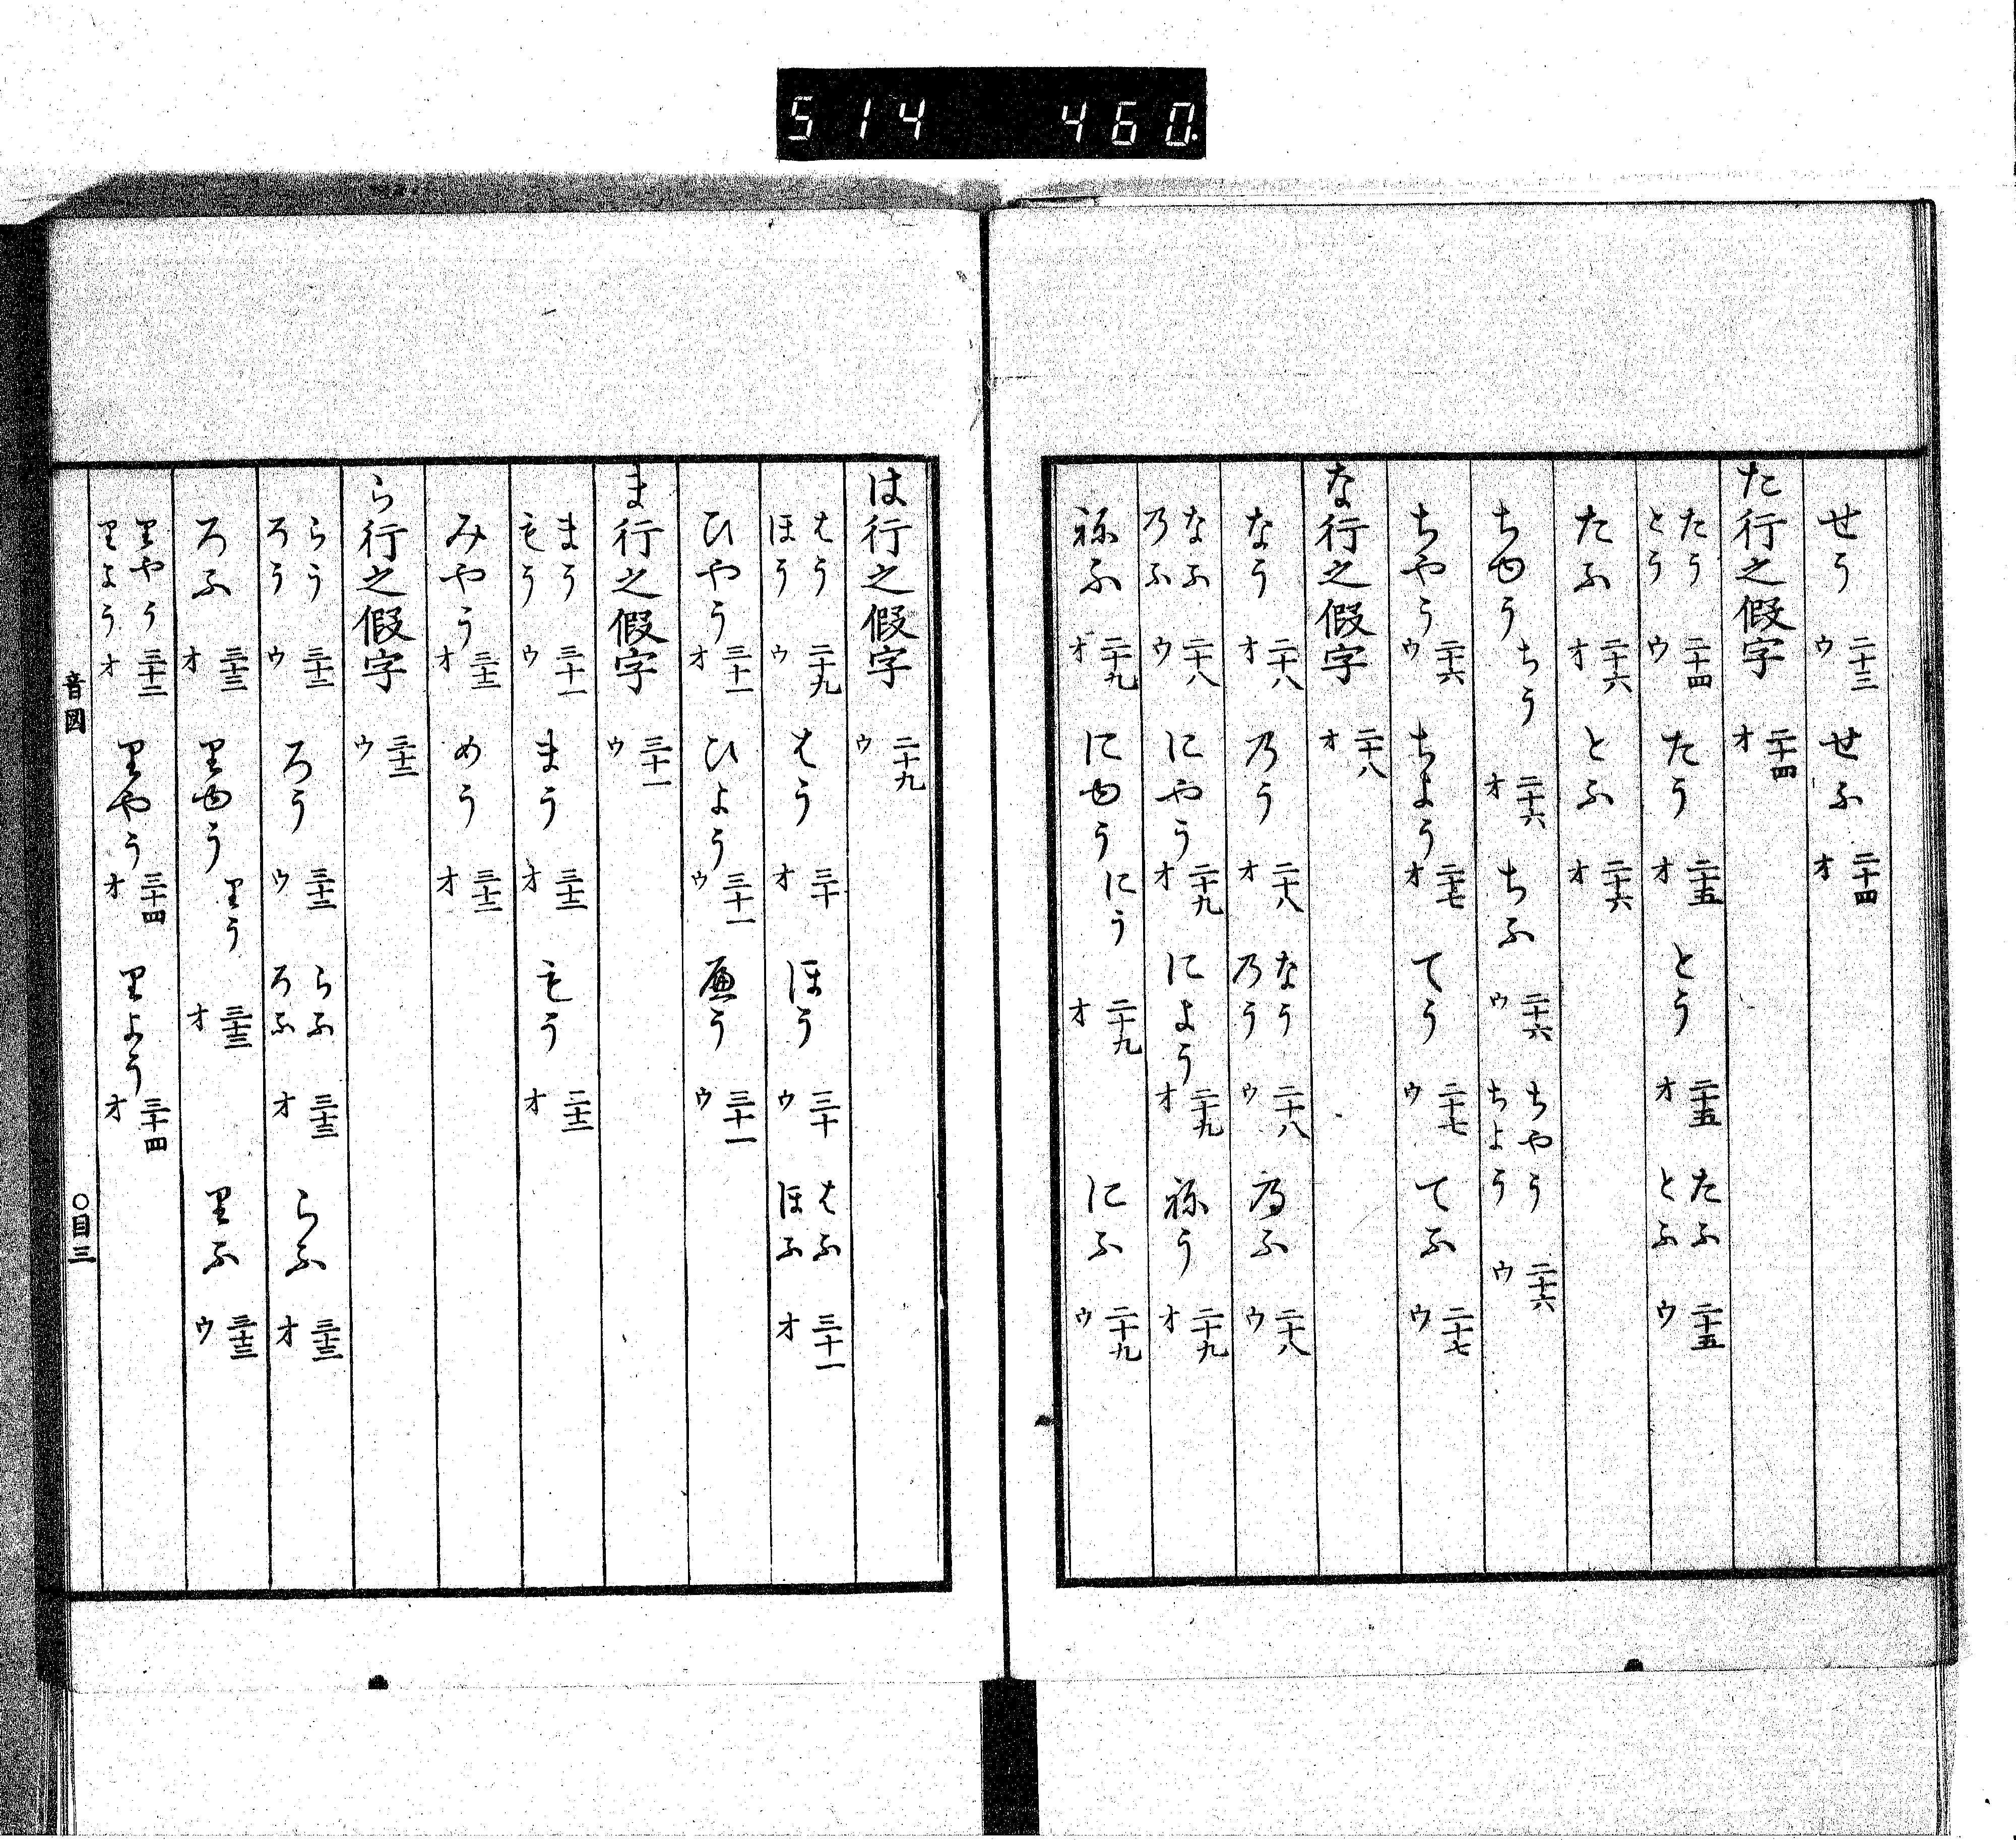 514 460.
せう 二十三ウ せふ 二十四オ
た行之假字 二十四オ
たう とう 二十四ウ たう 二十五オ とう 二十五オ たふ とふ 二十五ウ
たふ 二十六オ とふ 二十六オ
ちゆう ちう 二十六オ ちふ 二十六ウ ちやう ちよう 二十六ウ
ちやう 二十六ウ ちよう 二十七オ てう 二十七ウ てふ 二十七ウ
な行之假字 二十八オ
なう 二十八オ のう 二十八オ なう のう 二十八ウ なふ 二十八ウ
なふ のふ 二十八ウ にやう 二十九オ によう 二十九オ ねう 二十九オ
ねふ 二十九オ にゆう にう 二十九オ にふ 二十九ウ
は行之假字 二十九ウ
はう ほう 二十九ウ はう 三十オ ほう 三十ウ はふ ほふ 三十一オ
ひやう 三十一オ ひよう 三十一ウ へう 三十一ウ
ま行之假字 三十一ウ
まう もう 三十一ウ まう 三十二オ もう 三十二オ
みやう 三十二オ めう 三十二オ
ら行之假字 三十二ウ
らう ろう 三十二ウ ろう 三十二ウ らふ ろふ 三十三オ らふ 三十三オ
ろふ 三十三オ りゆう りう 三十三オ りふ 三十三ウ
りやう りよう 三十三オ りやう 三十四オ りよう 三十四オ
音圖 〇目三